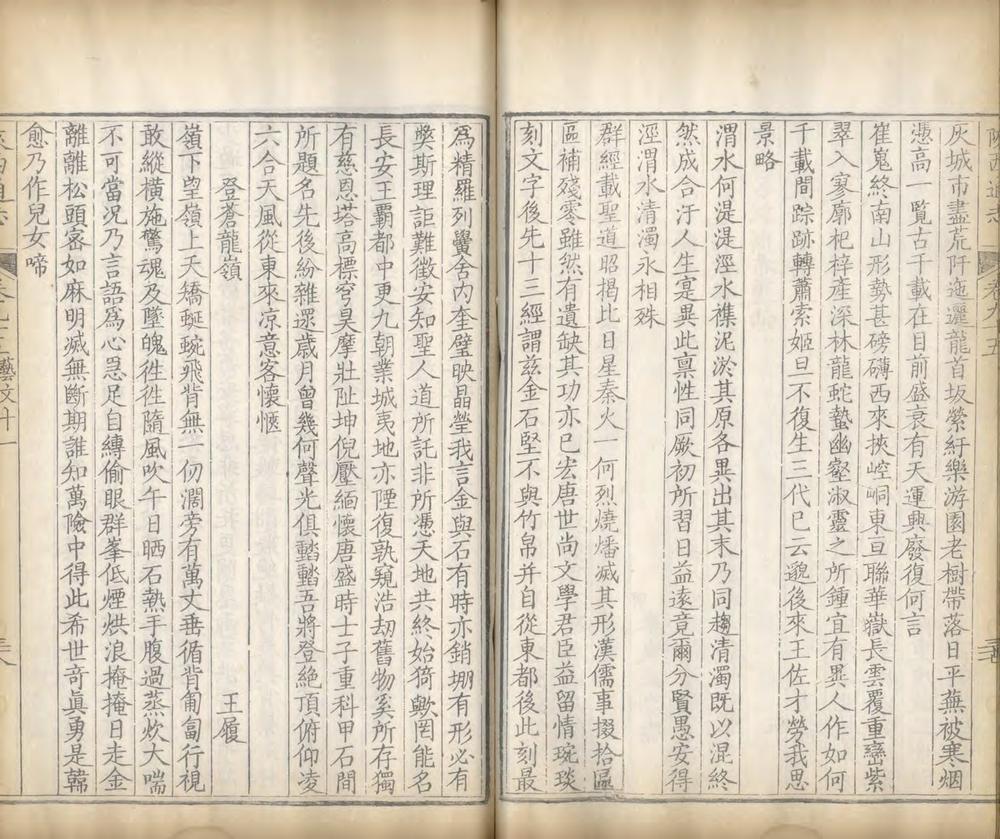 灰城市盡荒阡迤邐龍首坂縈紆樂游園老樹帶落日平蕪被寒烟
憑高一覽古千載在目前盛衰有天運興廢復何言
崔嵬終南山形勢甚磅礴西來挾崆峒東亘聯華嶽長雲覆重巒紫
翠入寥廓杞梓產深林龍蛇蟄幽壑淑靈之所鍾宜有異人作如何
千載間踪跡轉蕭索姬旦不復生三代已云邈後來王佐才勞我思
景略
渭水何湜湜涇水襍泥淤其原各異出其末乃同趨清濁既以混終
然成合汙人生寔異此禀性同厥初所習日益遠竟爾分賢愚安得
涇渭水清濁永相殊
群經載聖道昭揭比日星秦火一何烈燒燔滅其形漢儒事掇拾區
區補殘零雖然有遺缺其功亦已宏唐世尚文學君臣益留情琬琰
刻文字後先十三經謂兹金石堅不與竹帛并自從東都後此刻最
爲精羅列黌舍內奎璧映晶瑩我言金與石有時亦銷堋有形必有
獘斯理詎難徵安知聖人道所託非所憑天地共終始猗歟罔能名
長安王霸都中更九朝業城夷地亦陻復孰窺浩劫舊物奚所存獨
有慈恩塔高標穹昊摩壯趾坤倪壓緬懷唐盛時士子重科甲石間
所題名先後紛雜遝歲月曾幾何聲光俱䵬䵬吾將登絕頂俯仰凌
六合天風從東來凉意客懷愜
登蒼龍嶺
王履
嶺下望嶺上夭矯蜒蜿飛背無一仞濶旁有萬丈垂循背匍匐行視
敢縱橫施驚魂及墜魄徃徃隨風吹午日晒石熱手腹過蒸炊大喘
不可當况乃言語爲心恖足自縛偷眼群峯低煙烘浪掩掩日走金
離離松頭密如麻明滅無斷期誰知萬險中得此希世竒真勇是韓
愈乃作兒女啼